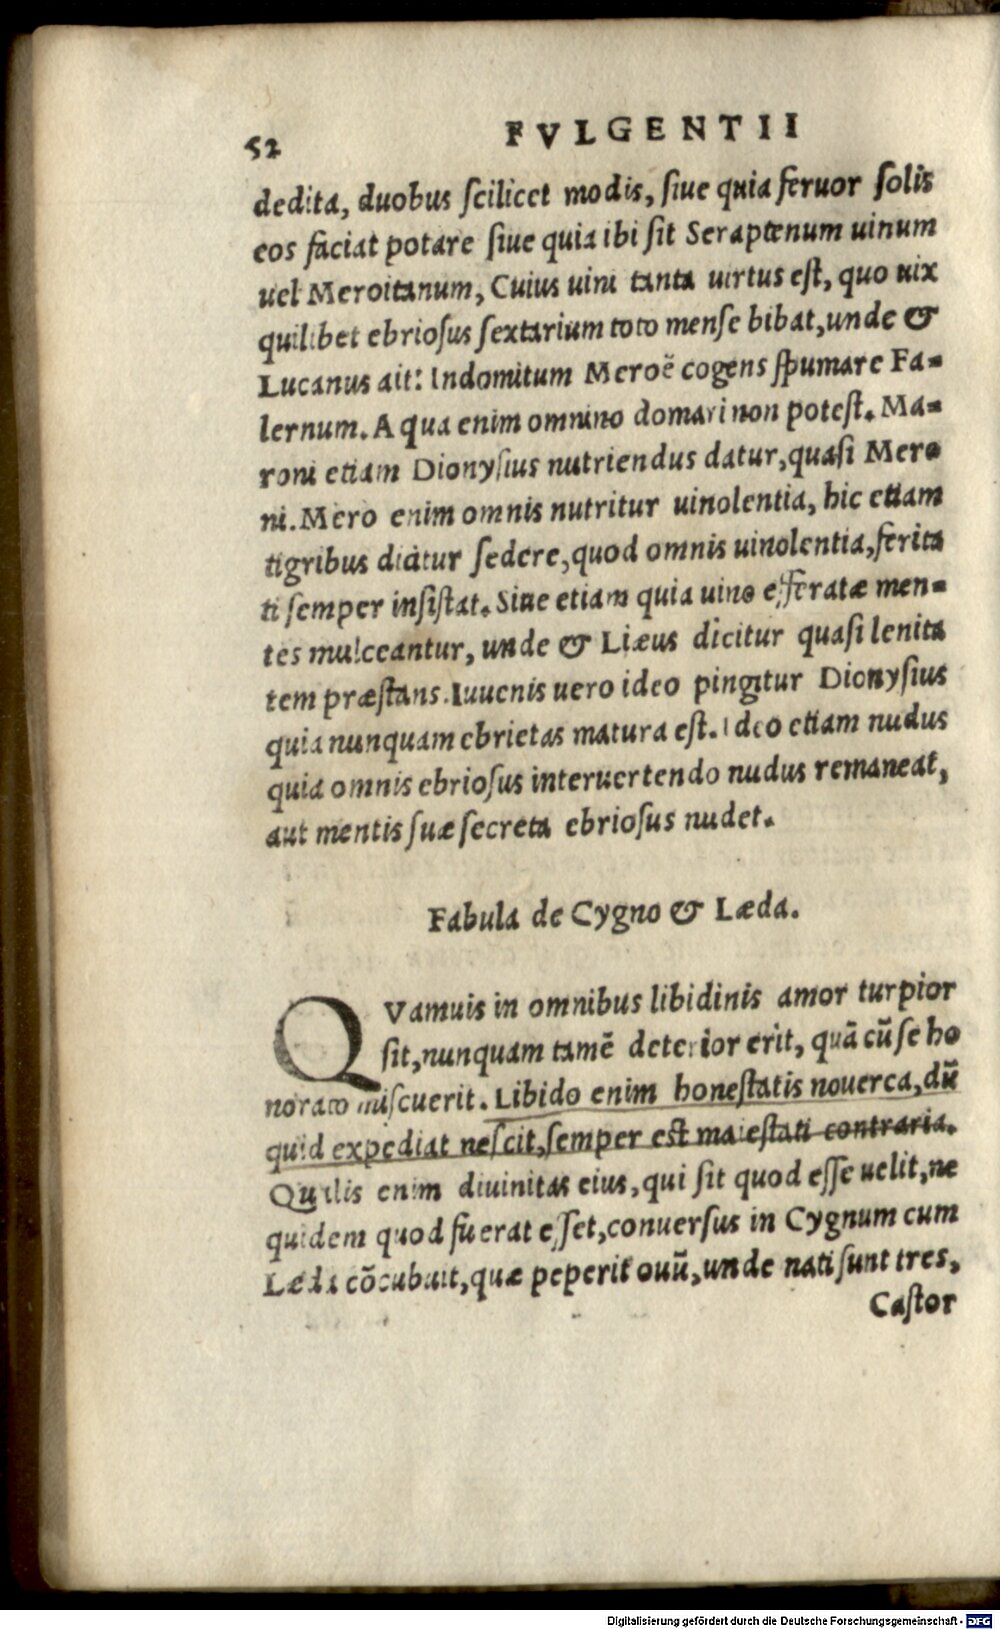 52 FVLGENTII
dedita, duobus ſcilicet modis, ſiue quia feruor ſolis
eos faciat potare ſiue quia ibi ſit Seraptenum uinum
uel Meroitanum, Cuius uini tanta uirtus eſt, quo uix
quilibet ebrioſus ſextarium toto menſe bibat, unde &
Lucanus ait: Indomitum Meroë cogens ſpumare Fa-
lernum. A qua enim omnino domari non poteſt. Ma-
roni etiam Dionyſius nutriendus datur, quaſi Mero
ni. Mero enim omnis nutritur uinolentia, hic etiam
tigribus dicitur ſedere, quod omnis uinolentia, ferita
ti ſemper inſiſtat. Siue etiam quia uino efferatæ men-
tes mulceantur, unde & Liæus dicitur quaſi lenita
tem præſtans. Iuuenis uero ideo pingitur Dionyſius
quia nunquam ebrietas matura eſt. Ideo etiam nudus
quia omnis ebrioſus interuertendo nudus remaneat,
aut mentis ſuæ ſecreta ebrioſus nudet.
Fabula de Cygno & Læda.
QVamuis in omnibus libidinis amor turpior
ſit, nunquam tamē deterior erit, quā cū ſe ho
norato miſcuerit. Libido enim honeſtatis nouerca, dū
quid expediat neſcit, ſemper eſt maieſtati contraria.
Qualis enim diuinitas eius, qui ſit quod eſſe uelit, ne
quidem quod fuerat eſſet, conuerſus in Cygnum cum
Læda cōcubuit, quæ peperit ouū, unde nati ſunt tres,
Caſtor
Digitalisierung gefördert durch die Deutsche Forschungsgemeinschaft - DFG